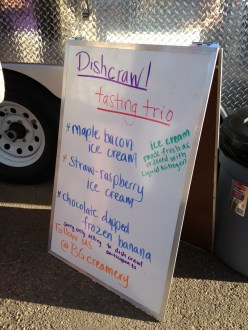 Dishcrawl
tasting trio
*maple bacon
ice cream
*straw-raspberry
ice cream
*chocolate dipped
frozen banana
ice cream
made fresh at
ordered with
liquid nitrogen
to dishcrawl
Follow us
@BGcreamery